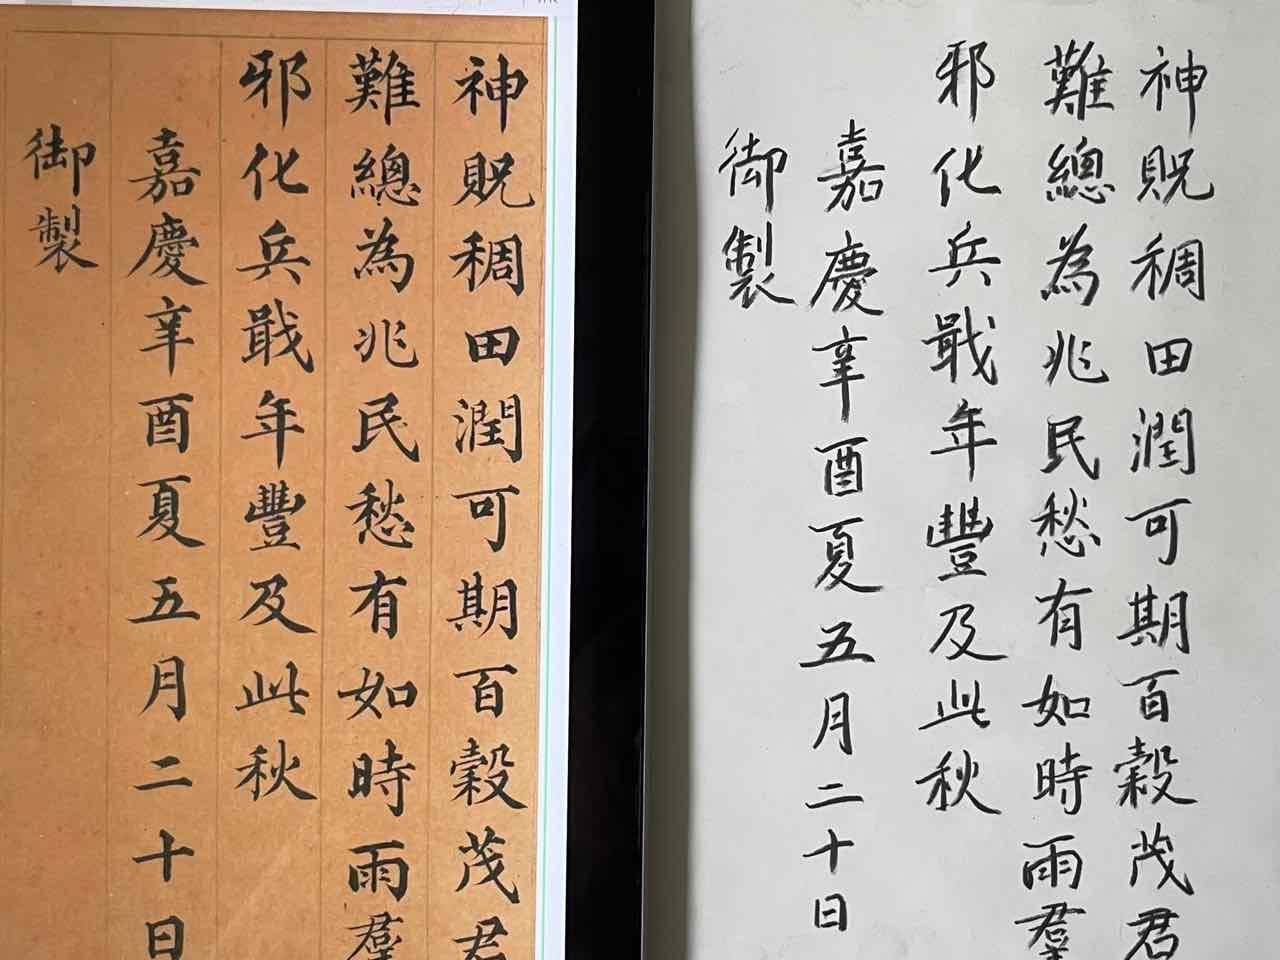 神貺稠田潤可期百穀茂君
難總為兆民愁有如時雨羣
邪化兵戢年豐及此秋
嘉慶辛酉夏五月二十日
御製
神貺稠田潤可期百穀茂君
難總為兆民愁有如時雨羣
邪化兵戢年豐及此秋
嘉慶辛酉夏五月二十日
御製